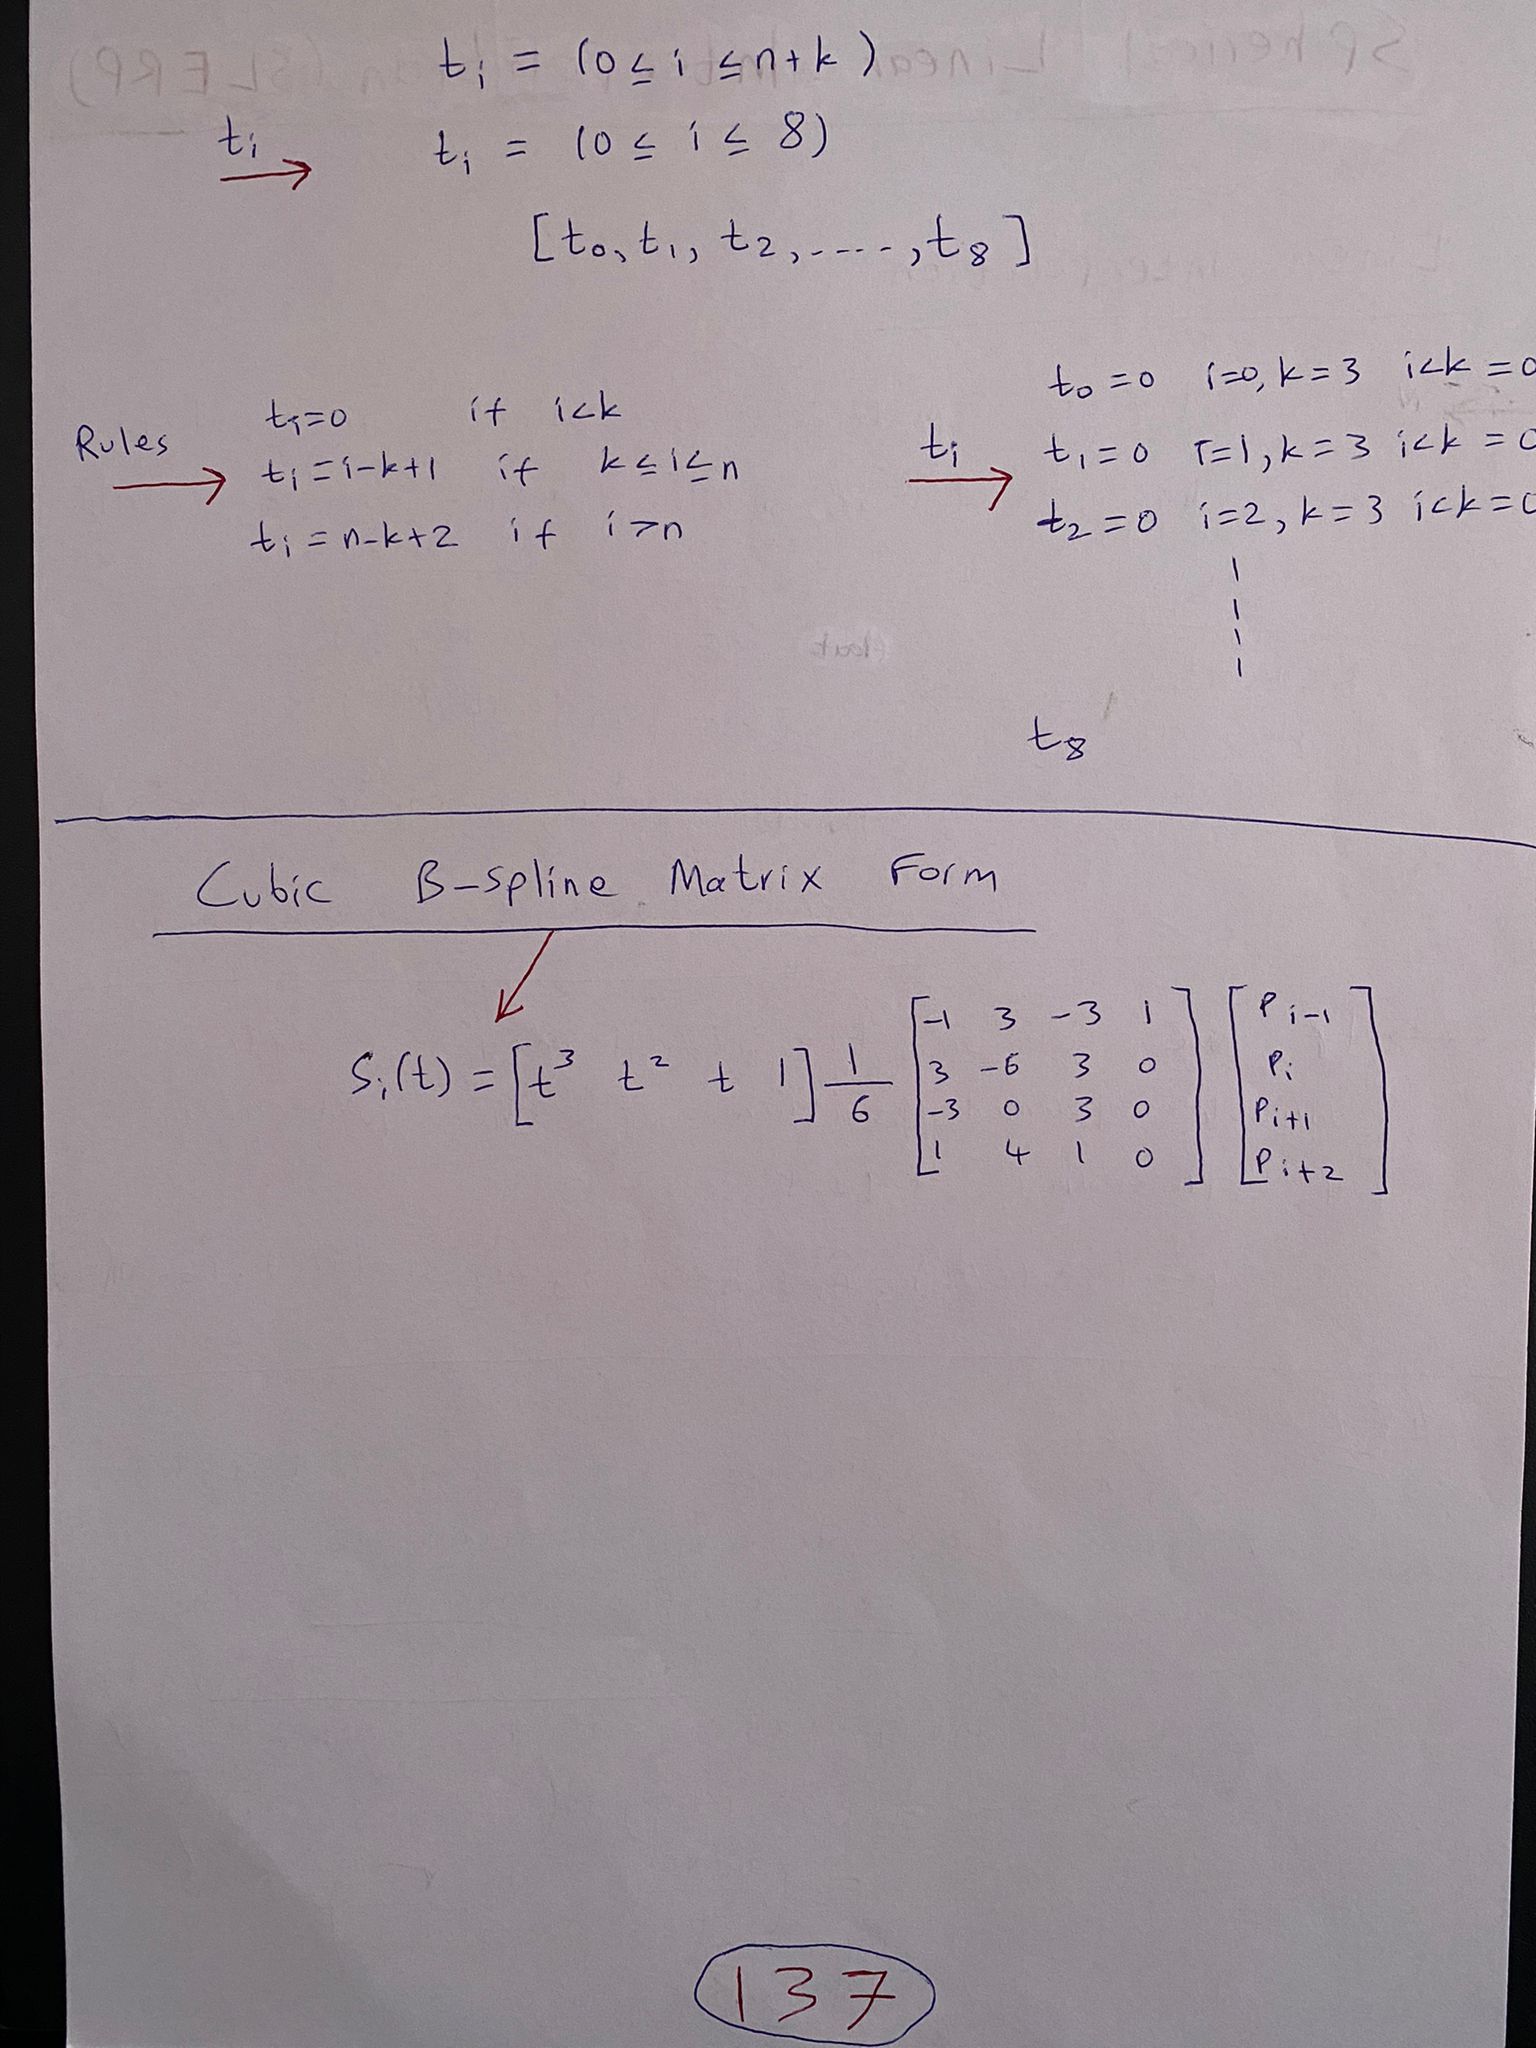 tᵢ = (0 ≤ i ≤ n+k)
tᵢ → tᵢ = (0 ≤ i ≤ 8)
[t₀, t₁, t₂, ....., t₈]
Rules →
tᵢ=0 if i<k
tᵢ=i-k+1 if k≤i≤n
tᵢ=n-k+2 if i>n
tᵢ →
t₀=0 i=0, k=3 i<k=0
t₁=0 i=1, k=3 i<k=0
t₂=0 i=2, k=3 i<k=0
t₈
Cubic B-spline Matrix Form
Sᵢ(t) = [t³ t² t 1] 1/6 [-1 3 -3 1; 3 -6 3 0; -3 0 3 0; 1 4 1 0] [Pᵢ₋₁; Pᵢ; Pᵢ₊₁; Pᵢ₊₂]
137